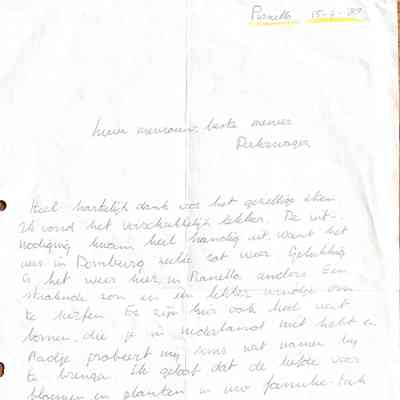 Pianello 15-7-87
Lieve mevrouw, beste meneer
Dirkzwager
Heel hartelijk dank voor het gezellige eten
Ik vond het verschrikkelijk lekker. De uit-
nodiging kwam heel handig uit, want het
was in Domburg echt rot weer. Gelukkig
is het weer hier in Pianello anders. Een
stralende zon en een lekker windje om
te surfen. Er zijn hier ook heel veel
bomen, die je in nederland niet hebt en
probeert mij soms wat namen bij
te brengen. Ik geloof dat de liefde voor
bloemen en planten in uw familie